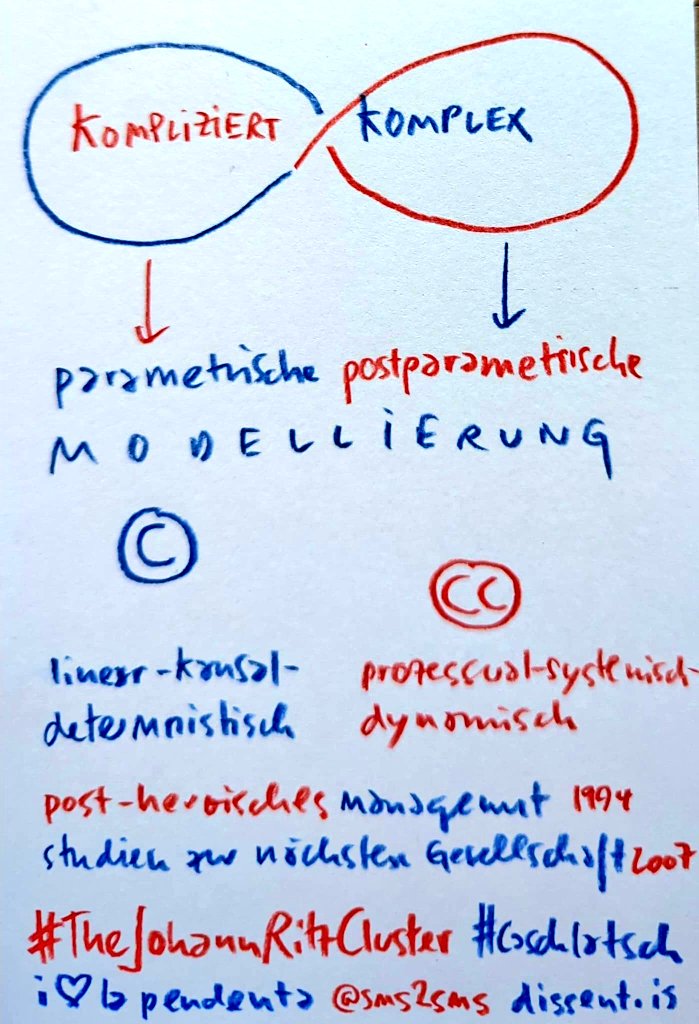 KOMPLIZIERT KOMPLEX
parametrische postparametrische
MODELLIERUNG
©
CC
linear-kausal- prozessual-systemisch-
determnistisch dynamisch
post-heroisches management 1994
studien zur nächsten Gesellschaft 2007
#TheJohannRitzCluster #Goschlatsch
i ♡ la pendenta @sms2sms dissent.is